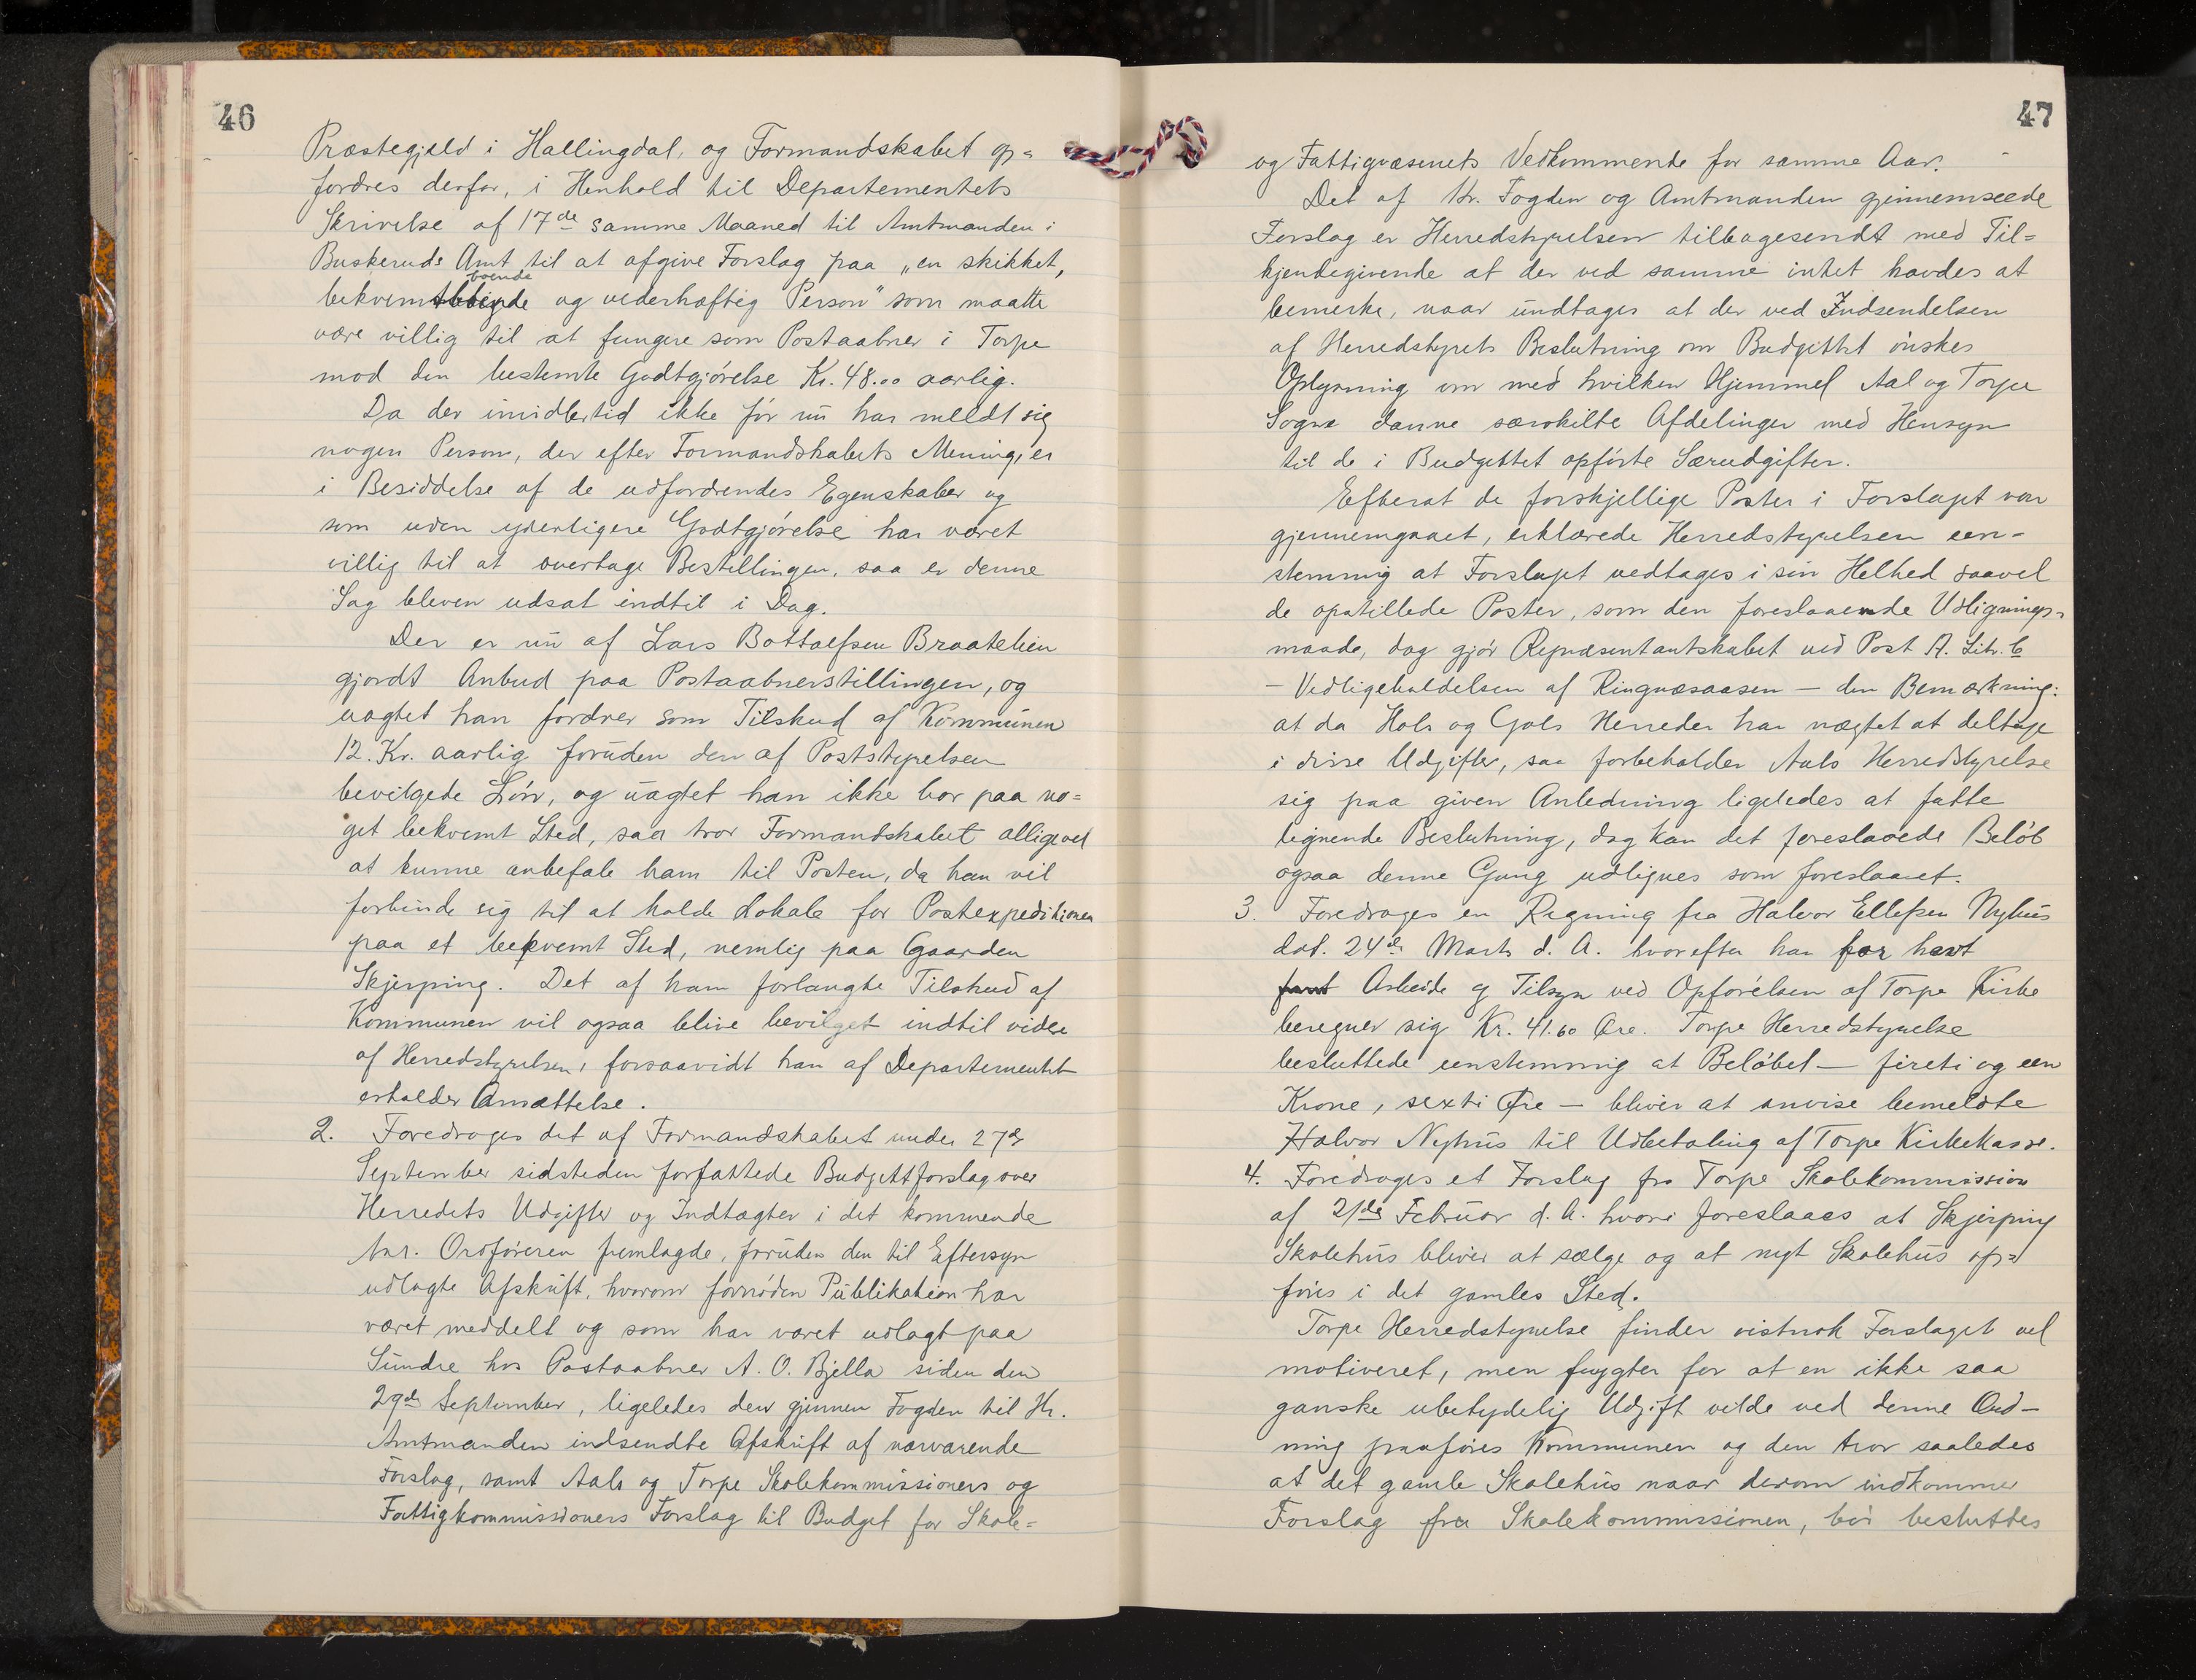 46
Præstegjeld i Hallingdal, og Formandskabet op=
fordres derfor, i Henhold til Departementets
Skrivelse af 17de samme Maaned til Amtmanden i
Buskeruds Amt til at afgive Forslag paa „en skikket,
boende
bekvemt og vederhæftig Person" som maatte
være villig til at fungere som Postaabner i Torpe
mod den bestemte Godtgjörelse Kr. 48.00 aarlig.
Da der imidlertid ikke för nu har meldt sig
nogen Person, der efter Formandskabets Mening, er
i Besiddelse af de udfordrendes Egenskaber og
som uden yderligere Godtgjörelse har været
villig til at overtage Bestillingen, saa er denne
Sag bleven udsat indtil i Dag.
Der er nu af Lars Bottolfsen Braatelien
gjordt Anbud paa Postaabnerstillingen, og
uagtet han fordrer som Tilskud af Kommunen
12. Kr. aarlig foruden den af Poststyrelsen
bevilgede Lön, og uagtet han ikke bor paa no=
get bekvemt Sted, saa tror Formandskabet alligevel
at kunne anbefale ham til Posten, da han vil
forbinde sig til at holde Lokale for Postexpeditionen
paa et bekvemt Sted, nemlig paa Gaarden
Skjerping. Det af ham forlangte Tilskud af
Kommunen vil ogsaa blive bevilget indtil videre
af Herredstyrelsen, forsaavidt han af Departementet
erholder Ansættelse.
2. Foredroges det af Formandskabet under 27de
September sidstleden forfattede Budgettforslag over
Herredets Udgifter og Indtægter i det kommende
Aar. Ordföreren fremlagde, foruden den til Eftersyn
udlagte Afskrift, hvorom fornöden Publikation har
været meddelt og som har været udlagt paa
Sundre hos Postaabner A. O. Bjella siden den
29de September, ligeledes den gjennem Fogden til Hr.
Amtmanden indsendte Afskrift af nærværende
Forslag, samt Aals og Torpe Skolekommissioners og
Fattigkommissioners Forslag til Budget for Skole=
47
og Fattigvæsenets Vedkommende for samme Aar.
Det af Hr. Fogden og Amtmanden gjennemseede
Forslag er Herredstyrelsen tilbagesendt med Til=
kjendegivende at der ved samme intet havdes at
bemerke, naar undtages at der ved Indsendelsen
af Herredstyrets Beslutning om Budgettet önskes
Oplysning om med hvilken Hjemmel Aal og Torpe
Sogne danne særskilte Afdelinger med Hensyn
til de i Budgettet opförte Særudgifter.
Efterat de forskjellige Poster i Forslaget var
gjennemgaaet, erklærede Herredstyrelsen een-
stemmig at Forslaget vedtages i sin Helhed saavel
de opstillede Poster, som den foreslaaende Udlignings=
maade, dog gjör Repræsentantskabet ved Post A. Litr. b
- Vedligeholdelsen af Ringnæsaasen - den Bemærkning:
at da Hols og Gols Herreder har nægtet at deltage
i disse Udgifter, saa forbeholder Aals Herredstyrelse
sig paa given Anledning ligeledes at fatte
lignende Beslutning, dog kan det foreslaaede Belöb
ogsaa denne Gang udlignes som foreslaaet.
3. Foredroges en Regning fra Halvor Ellefsen Nyhus
dat. 24de Marts d. A. hvorefter han for havt
Arbeide og Tilsyn ved Opförelsen af Torpe Kirke
beregner sig Kr. 41.60 Öre. Torpe Herredstyrelse
besluttede eenstemmig at Belöbet - fireti og een
Krone, sexti Öre - bliver at anvise bemeldte
Halvor Nyhus til Udbetaling af Torpe Kirkekasse.
4. Foredroges et Forslag fra Torpe Skolekommission
af 21de Februar d. A. hvori foreslaaes at Skjerping
Skolehus bliver at sælge og at nyt Skolehus op=
föres i det gamles Sted.
Torpe Herredstyrelse finder vistnok Forslaget vel
motiveret, men frygter for at en ikke saa
ganske ubetydelig Udgift vilde ved denne Ord-
ning paaföres Kommunen og den tror saaledes
at det gamle Skolehus naar derom indkommer
Forslag fra Skolekommissionen, bör besluttes